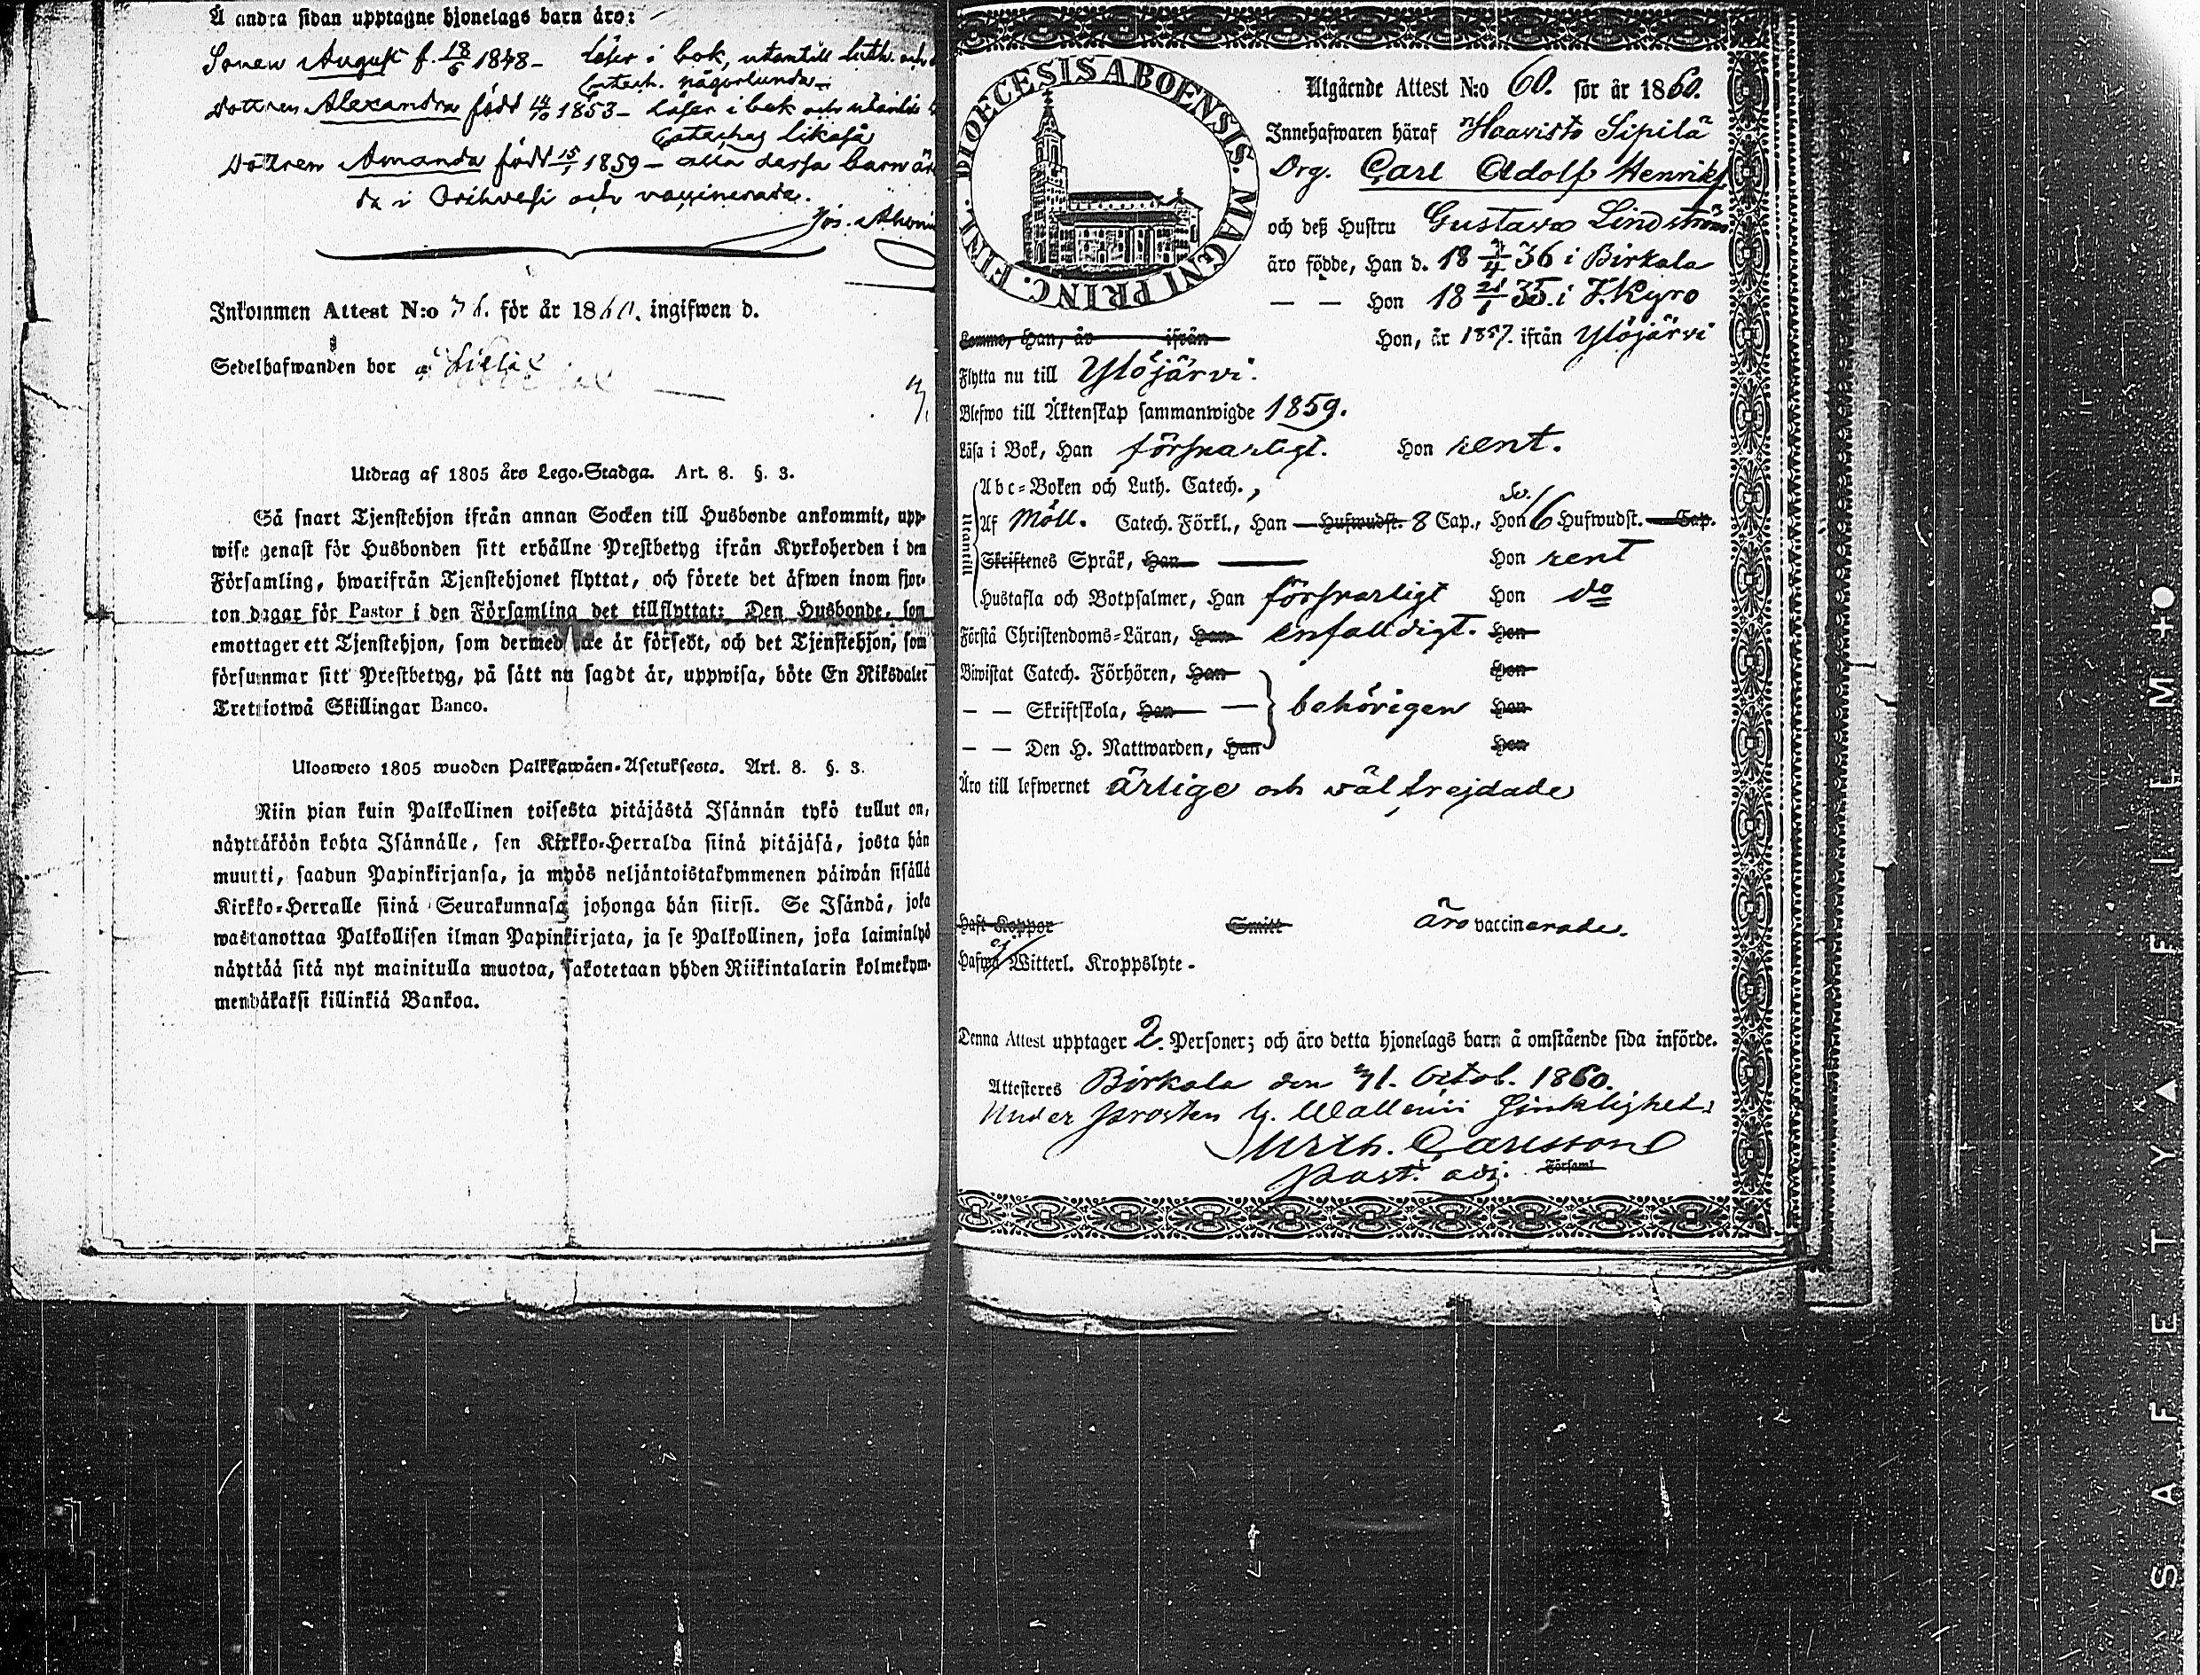 Å andra sidan upptagne hjonelags barn äro:
Sonen August f. 18/6 1848 - läser i bok, utantill luth. och
Catech. någorlunda -
Dottren Alexandra född 1853 - läser i bok och utantill
Cateches likaså
Dottren Amanda född 15/1 1859 - alla dessa barn är
da i Orihvesi och vaccinerade.
Inkommen Attest N:o 76. för år 1860. ingifwen d.
Sedelhafwanden bor å
Utdrag af 1805 års Lego-Stadga. Art. 8. §. 3.
Så snart Tjenstehjon ifrån annan Socken till Husbonde ankommit, upp-
wise genast för Husbonden sitt erhållne Prestbetyg ifrån Kyrkoherden i den
Församling, hwarifrån Tjenstehjonet flyttat, och förete det äfwen inom fjor-
ton dagar för Pastor i den Församling det tillflyttat: Den Husbonde, som
emottager ett Tjenstehjon, som dermed icke är försedt, och det Tjenstehjon, som
försummar sitt Prestbetyg, på sätt nu sagdt är, uppwisa, böte En Riksdaler
Trettiotwå Skillingar Banco.
Ulosweto 1805 wuoden Palkkawäen-Asetuksesta. Art. 8. §. 3.
Niin pian kuin Palkollinen toisesta pitäjästä Isännän tykö tullut on,
näyttäköön kohta Isännälle, sen Kirkko-Herralda siinä pitäjäsä, josta hän
muutti, saadun Papinkirjansa, ja myös neljäntoistakymmenen päiwän sisällä
Kirkko-Herralle siinä Seurakunnasa johonga hän siirsi. Se Isändä, joka
wastanottaa Palkollisen ilman Papinkirjata, ja se Palkollinen, joka laiminlyö
näyttää sitä nyt mainitulla muotoa, sakotetaan yhden Riikintalarin kolmekym-
mendäkaksi killinkiä Bankoa.
DIOECESIS ABOENSIS. MAGNI PRINC. FINL.
Utgående Attest N:o 60. för år 1860.
Innehafwaren häraf Haavisto Sipilä
Drg. Carl Adolf Henriks
och deß Hustru Gustava Lindström
äro födde, Han d. 18 /4 36 i Birkala
— — Hon 18 21/1 35. i T.Kyro
Komne, Han, år ifrån Hon, år 1857. ifrån Ylöjärvi
Flytta nu till Ylöjärvi.
Blefwo till Äktenskap sammanwigde 1859.
Läsa i Bok, Han försvarligt. Hon rent.
Utantill
Abc-Boken och Luth. Catech.,
Af Möll. Catech. Förkl., Han — Hufwudst. 8 Cap., Hon 6 Hufwudst. — Cap.
Skriftenes Språk, Han — Hon rent
Hustafla och Botpsalmer, Han försvarligt Hon do
Förstå Christendoms-Läran, Han enfalldigt. Hon
Biwistat Catech. Förhören, Han Hon
— — Skriftskola, Han — behörigen Hon
— — Den H. Nattwarden, Han Hon
Äro till lefwernet ärlige och väl frejdade
Haft Koppor Smitt äro vaccinerade.
Hafwa ej Witterl. Kroppslyte -
Denna Attest upptager 2. Personer; och äro detta hjonelags barn å omstående sida införde.
Attesteres Birkala den 31. Octob. 1860.
Under prosten G. Wallenii sjuklighet:
Carlsson
Past. adj. Församl
SAFETY▲FILM